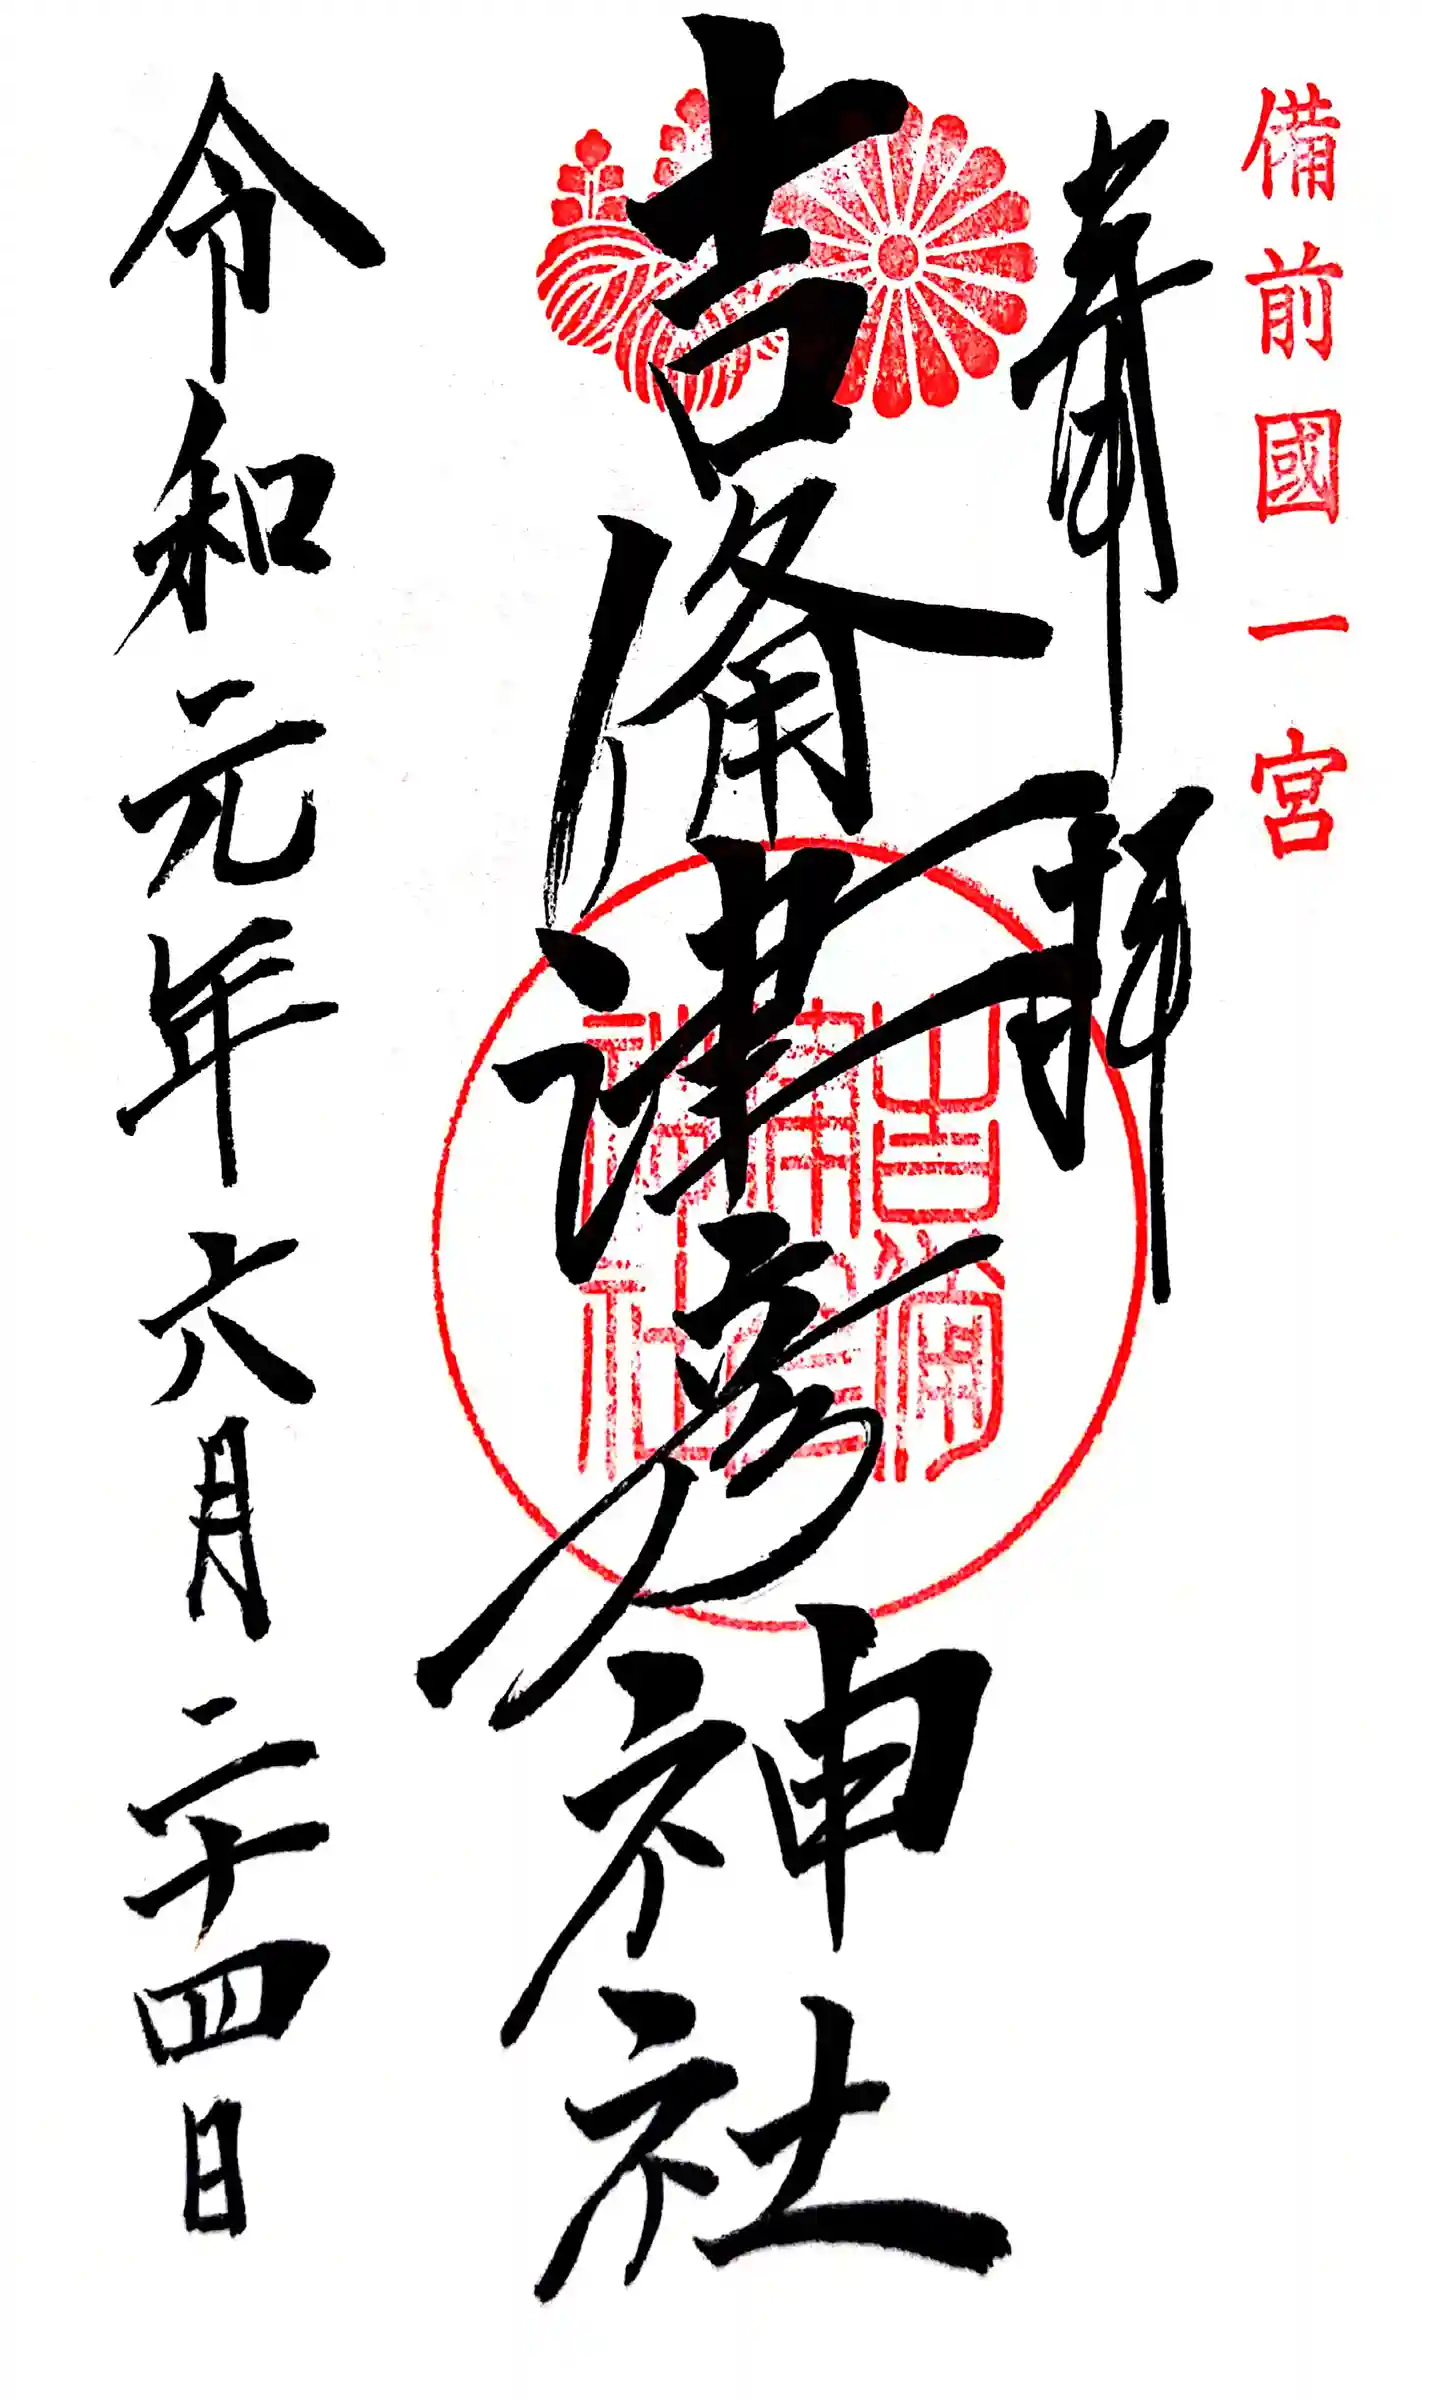 備前國一宮
奉拝
吉備津彦神社
吉備津彦神社
令和元年六月二十四日